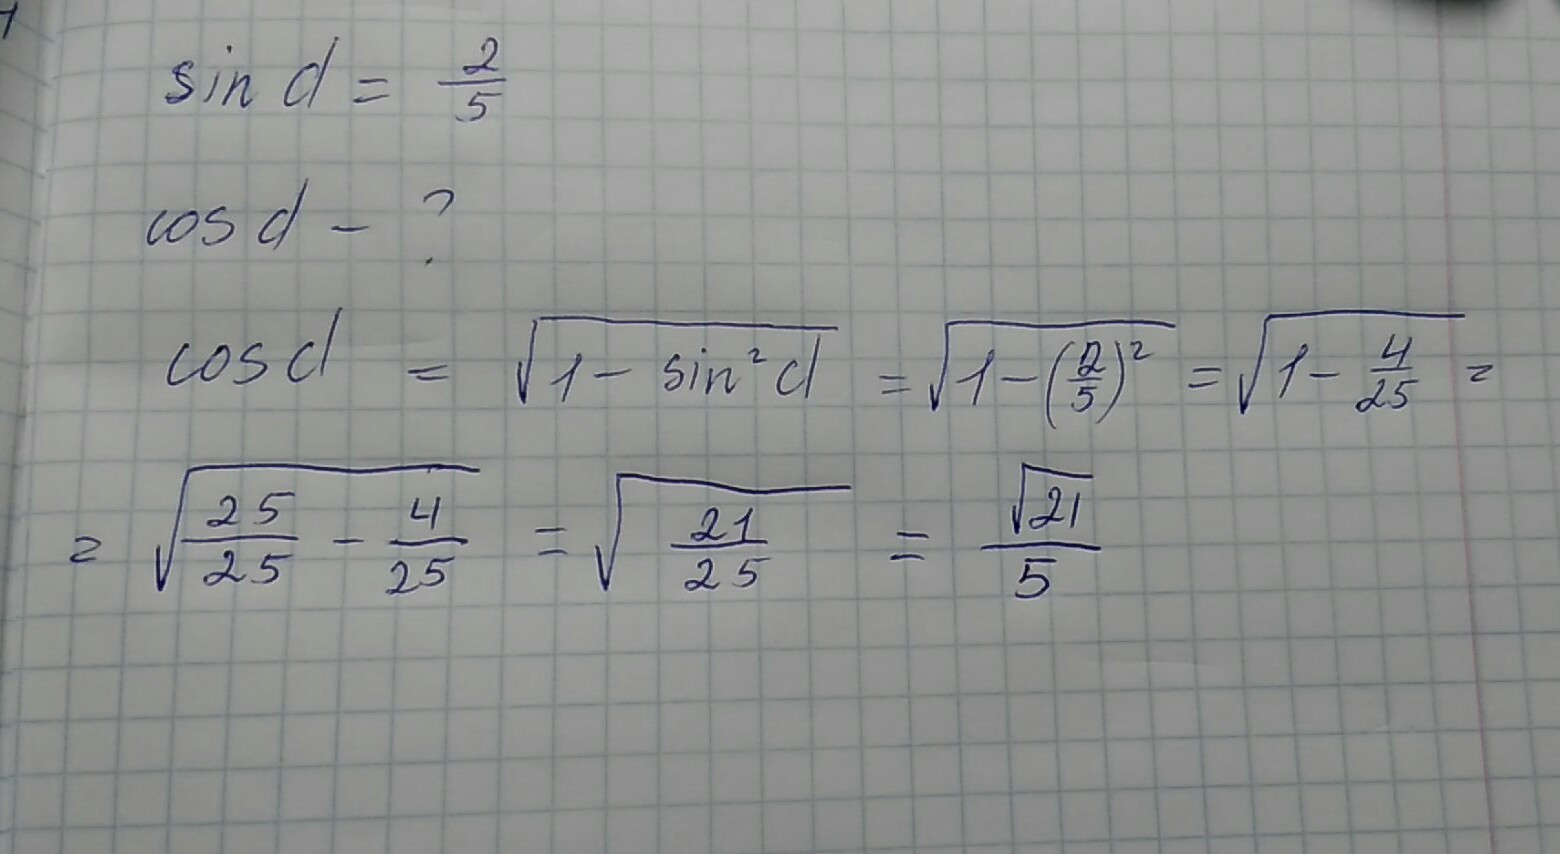 sin d = 2/5
cos d – ?
cos d = √(1 – sin²d) = √(1 – (2/5)²) = √(1 – 4/25) =
= √(25/25 – 4/25) = √(21/25) = √21/5